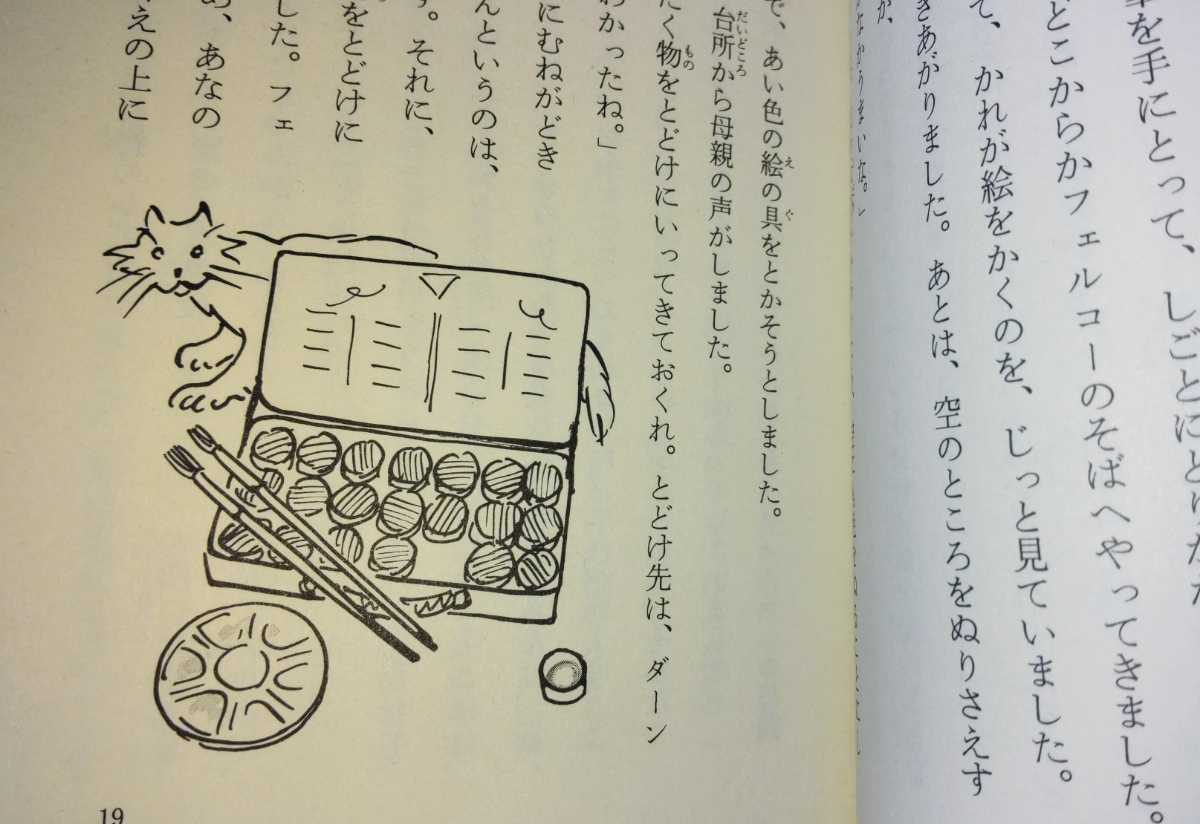 筆を手にとって、しごとにとりかか
どこからかフェルコーのそばへやってきました。
て、かれが絵をかくのを、じっと見ていました。
きあがりました。あとは、空のところをぬりさえす
か、
なかうまいな。」
で、あい色の絵の具をとかそうとしました。
台所から母親の声がしました。
たく物をとどけにいってきておくれ。とどけ先は、ダーン
わかったね。」
にむねがどき
んというのは、
す。それに、
をとどけに
した。フェ
あ、あなの
えの上に
19